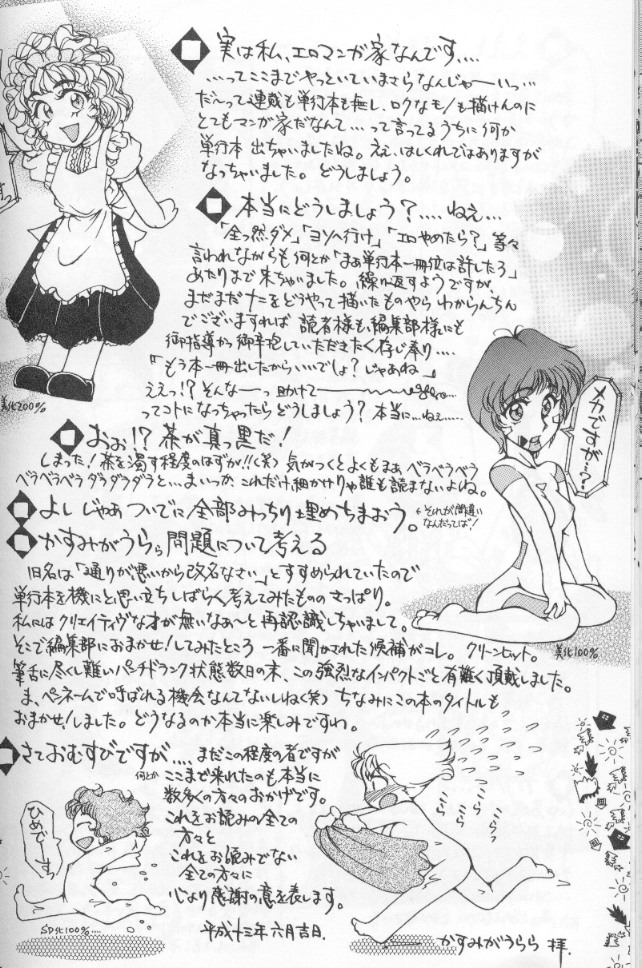 実は私、エロマンガ家なんです....
...ってここまでやっといていまさらなんじゃーいっ...
だ〜って連載も単行本も無し、ロクなモノも描けんのに
とてもマンガ家だなんて...って言ってるうちに何か
単行本 出ちゃいましたね。ええ、はしくれではありますが
なっちゃいました。どうしましょう。
本当にどうしましょう?....ねえ...
「全っ然ダメ」「ヨソへ行け」「エロやめたら?」等々
言われながらも何とか「まあ単行本一冊位は許したろ」
あたりまで来ちゃいました。繰り返すようですが、
まだまだナニをどうやって描いたものやらわからんちん
でございますれば 読者様も編集部様にも
御指導かつ御辛抱していただきたく存じ奉り....
「もう本一冊出したからいいでしょ?じゃあね」
ええっ!?そんなーっ助けて
ってコトになっちゃったらどうしましょう?本当に...ねえ......
美化200%
メカですが...?
おぉ!?茶が真っ黒だ!
しまった!茶を濁す程度のはずが!!(笑) 気がつくとよくもまぁベラベラベラ
ベラベラベラダラダラダラと...まいっか、これだけ細かけりゃ誰も読まないよね。
よし じゃあついでに全部みっちり埋めちまおう。
それが間違い
なんだってば!
かすみがうらら問題について考える
旧名は「通りが悪いから改名なさい」とすすめられていたので
単行本を機にと思い立ちしばらく考えてみたもののさっぱり。
私にはクリエイティヴな才が無いなあ〜と再認識しちゃいまして。
そこで編集部におまかせ!してみたところ 一番に聞かされた候補がコレ。クリーンヒット。
美化100%
筆舌に尽くし難いパンチドランク状態数日の末、この強烈なインパクトごと有難く頂戴しました。
ま、ペンネームで呼ばれる機会なんてないしねぇ(笑) ちなみにこの本のタイトルも
おまかせ!しました。どうなるのか本当に楽しみですわ。
さておむすびですが....まだこの程度の者ですが
何とか
ここまで来れたのも本当に
数多くの方々のおかげです。
これをお読みの全ての
方々と
これをお読みでない
全ての方々に
心より感謝の意を表します。
平成十三年六月吉日.
ひめです。
SD化100%....
うらうら
うらら
かすみがうらら 拝.